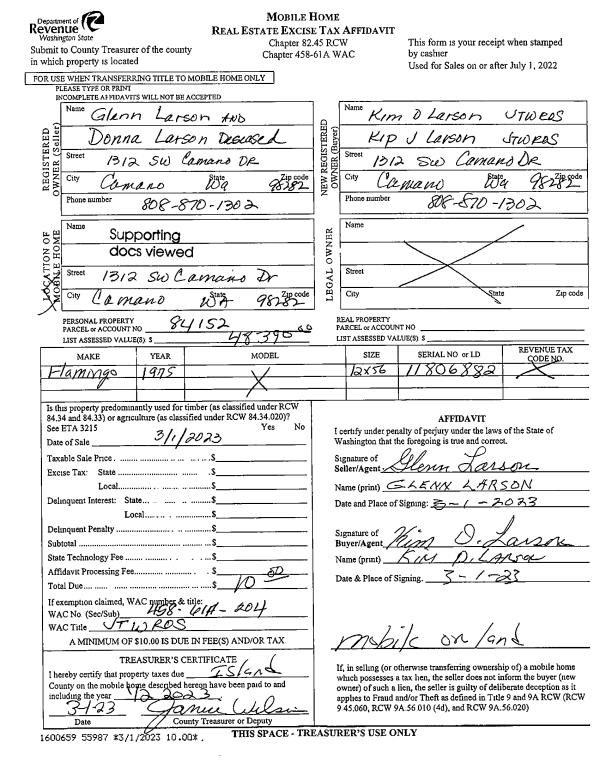 Department of
Revenue
Washington State
Submit to County Treasurer of the county
in which property is located
MOBILE HOME
REAL ESTATE EXCISE TAX AFFIDAVIT
Chapter 82.45 RCW
Chapter 458-61A WAC
This form is your receipt when stamped
by cashier
Used for Sales on or after July 1, 2022
FOR USE WHEN TRANSFERRING TITLE TO MOBILE HOME ONLY
PLEASE TYPE OR PRINT
INCOMPLETE AFFIDAVITS WILL NOT BE ACCEPTED
REGISTERED OWNER (Seller)
Name Glenn Larson AND
Donna Larson Deceased
Street 1312 SW Camano DR
City Camano State Wa Zip code 98282
Phone number 808-870-1302
NEW REGISTERED OWNER (Buyer)
Name Kim D Larson JTWROS
Kip J Larson JTWROS
Street 1312 SW Camano DR
City Camano State Wa Zip code 98282
Phone number 808-870-1302
LOCATION OF MOBILE HOME
Name Supporting
docs viewed
Street 1312 SW Camano Dr
City Camano State WA Zip code 98282
LEGAL OWNER
Name
Street
City State Zip code
PERSONAL PROPERTY
PARCEL or ACCOUNT NO 84152
LIST ASSESSED VALUE(S) $ 48390 00
REAL PROPERTY
PARCEL or ACCOUNT NO
LIST ASSESSED VALUE(S) $
MAKE YEAR MODEL SIZE SERIAL NO or I.D REVENUE TAX CODE NO.
Flamingo 1975 X 12x56 11806882
Is this property predominantly used for timber (as classified under RCW
84.34 and 84.33) or agriculture (as classified under RCW 84.34.020)?
See ETA 3215 Yes No
Date of Sale 3/1/2023
Taxable Sale Price $
Excise Tax: State $
Local $
Delinquent Interest: State $
Local $
Delinquent Penalty $
Subtotal $
State Technology Fee $
Affidavit Processing Fee $
Total Due $ 10 00
If exemption claimed, WAC number & title:
WAC No (Sec/Sub) 458-61A-204
WAC Title JTWROS
A MINIMUM OF $10.00 IS DUE IN FEE(S) AND/OR TAX
AFFIDAVIT
I certify under penalty of perjury under the laws of the State of
Washington that the foregoing is true and correct.
Signature of
Seller/Agent Glenn Larson
Name (print) GLENN LARSON
Date and Place of Signing: 3-1-2023
Signature of
Buyer/Agent Kim D. Larson
Name (print) KIM D. LARSON
Date & Place of Signing. 3-1-23
mobile on land
TREASURER'S CERTIFICATE
I hereby certify that property taxes due Island
County on the mobile home described hereon have been paid to and
including the year 1/2 2023
3-1-23 Janice Wilson
Date County Treasurer or Deputy
If, in selling (or otherwise transferring ownership of) a mobile home
which possesses a tax lien, the seller does not inform the buyer (new
owner) of such a lien, the seller is guilty of deliberate deception as it
applies to Fraud and/or Theft as defined in Title 9 and 9A RCW (RCW
9.45.060, RCW 9A.56 010 (4d), and RCW 9A.56.020)
1600659 55987 *3/1/2023 10.00*.
THIS SPACE - TREASURER'S USE ONLY